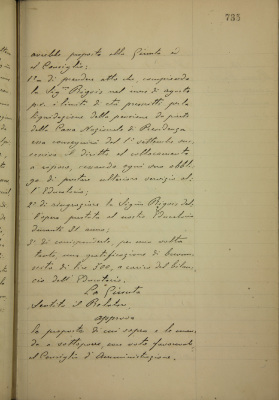 735
avrebbe proposto alla Giunta e
al Consiglio:
1° di prendere atto che, compiendo
la Sig.na Rigois nel mese di agosto
p.v. i limiti di età prescritti per la
liquidazione della pensione da parte
della Cassa Nazionale di Previdenza
essa conseguirà dal 1° settembre suc
cessivo il diritto al collocamento
a riposo, cessando ogni suo obbli
go di prestare ulteriore servizio al
l'Educatorio;
2° di ringraziare la Sig.na Rigois del
l'opera prestata al nostro Educatorio
durante 21 anni;
3° di corrisponderle, per una volta
tanto, una gratificazione di buonu
scita di lire 500, a carico del bilan
cio dell'Educatorio.
La Giunta
Sentito il Relatore,
approva
la proposta di cui sopra e la man
da a sottoporre, con voto favorevole
al Consiglio d'Amministrazione.